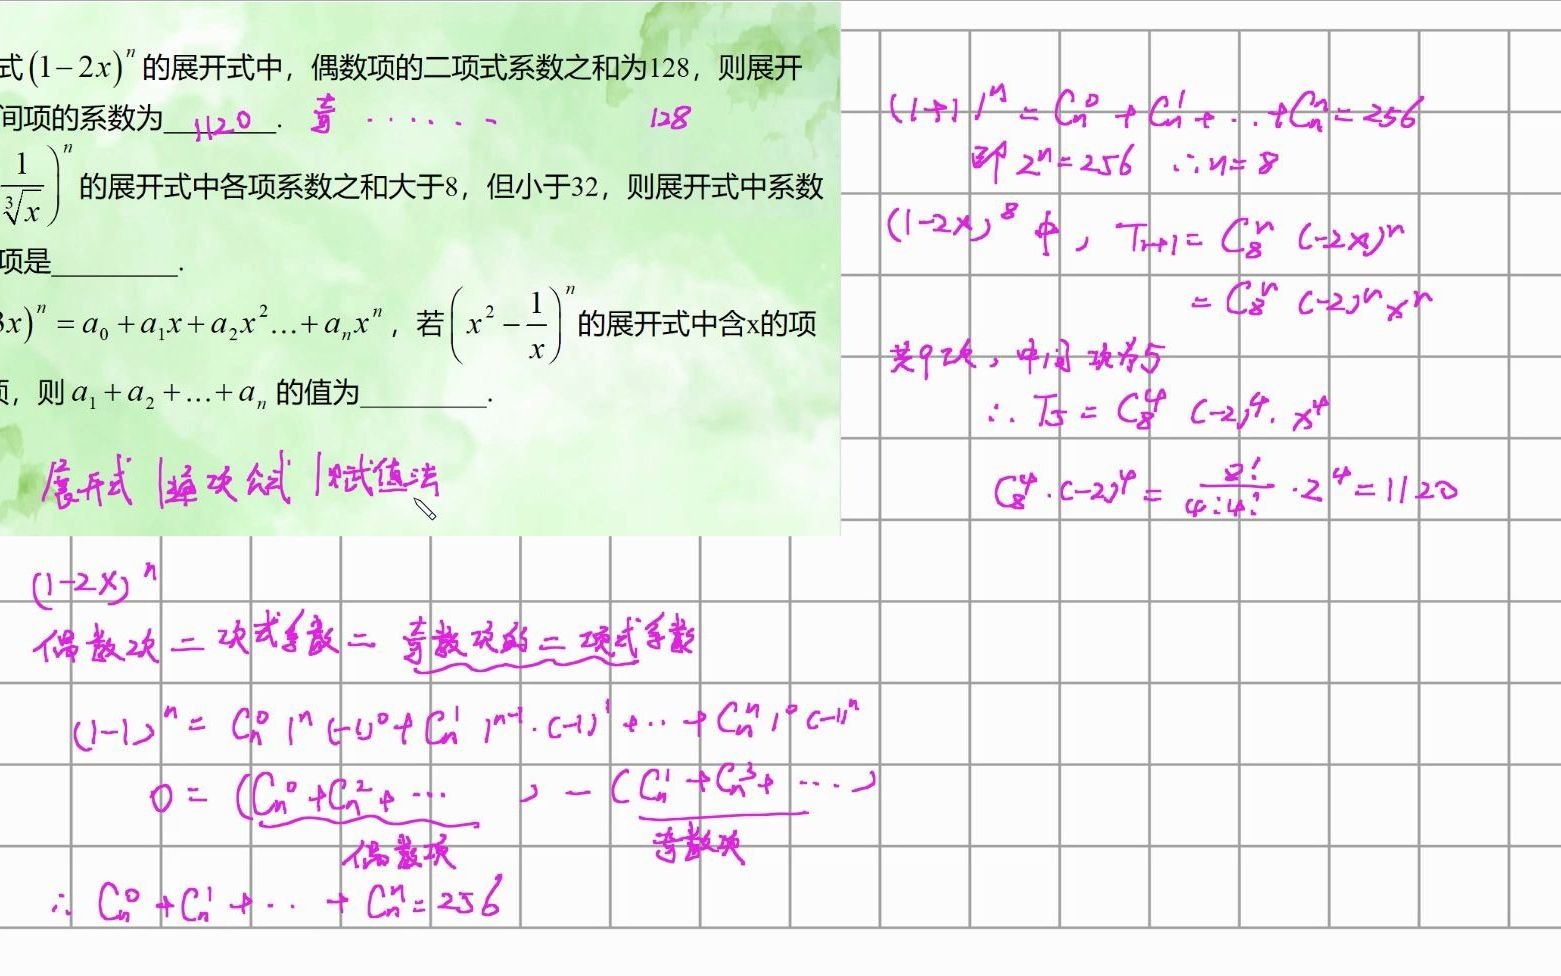 式(1-2x)^n 的展开式中，偶数项的二项式系数之和为128，则展开
间项的系数为 1120 . 奇 ······ 128
1/∛x)^n 的展开式中各项系数之和大于8，但小于32，则展开式中系数
项是________.
3x)^n = a_0 + a_1x + a_2x^2...+ a_nx^n，若(x^2 - 1/x)^n 的展开式中含x的项
项，则 a_1 + a_2 +...+ a_n 的值为________.
展开式 | 通项公式 | 赋值法
(1-2x)^n
偶数项二项式系数 = 奇数项的二项式系数
(1-1)^n = C_n^0 1^n (-1)^0 + C_n^1 1^{n-1}·(-1)^1 + ·· + C_n^n 1^0 (-1)^n
0 = (C_n^0 + C_n^2 + ··· ) - (C_n^1 + C_n^3 + ···· )
偶数项 奇数项
∴ C_n^0 + C_n^1 + ·· + C_n^n = 256
(1+1)^n = C_n^0 + C_n^1 + ·· + C_n^n = 256
即 2^n = 256 ∴ n = 8
(1-2x)^8 中，T_{r+1} = C_8^r (-2x)^r
= C_8^r (-2)^r x^r
共9项，中间项为5
∴ T_5 = C_8^4 (-2)^4 · x^4
C_8^4 · (-2)^4 = 8!/4!·4! · 2^4 = 1120